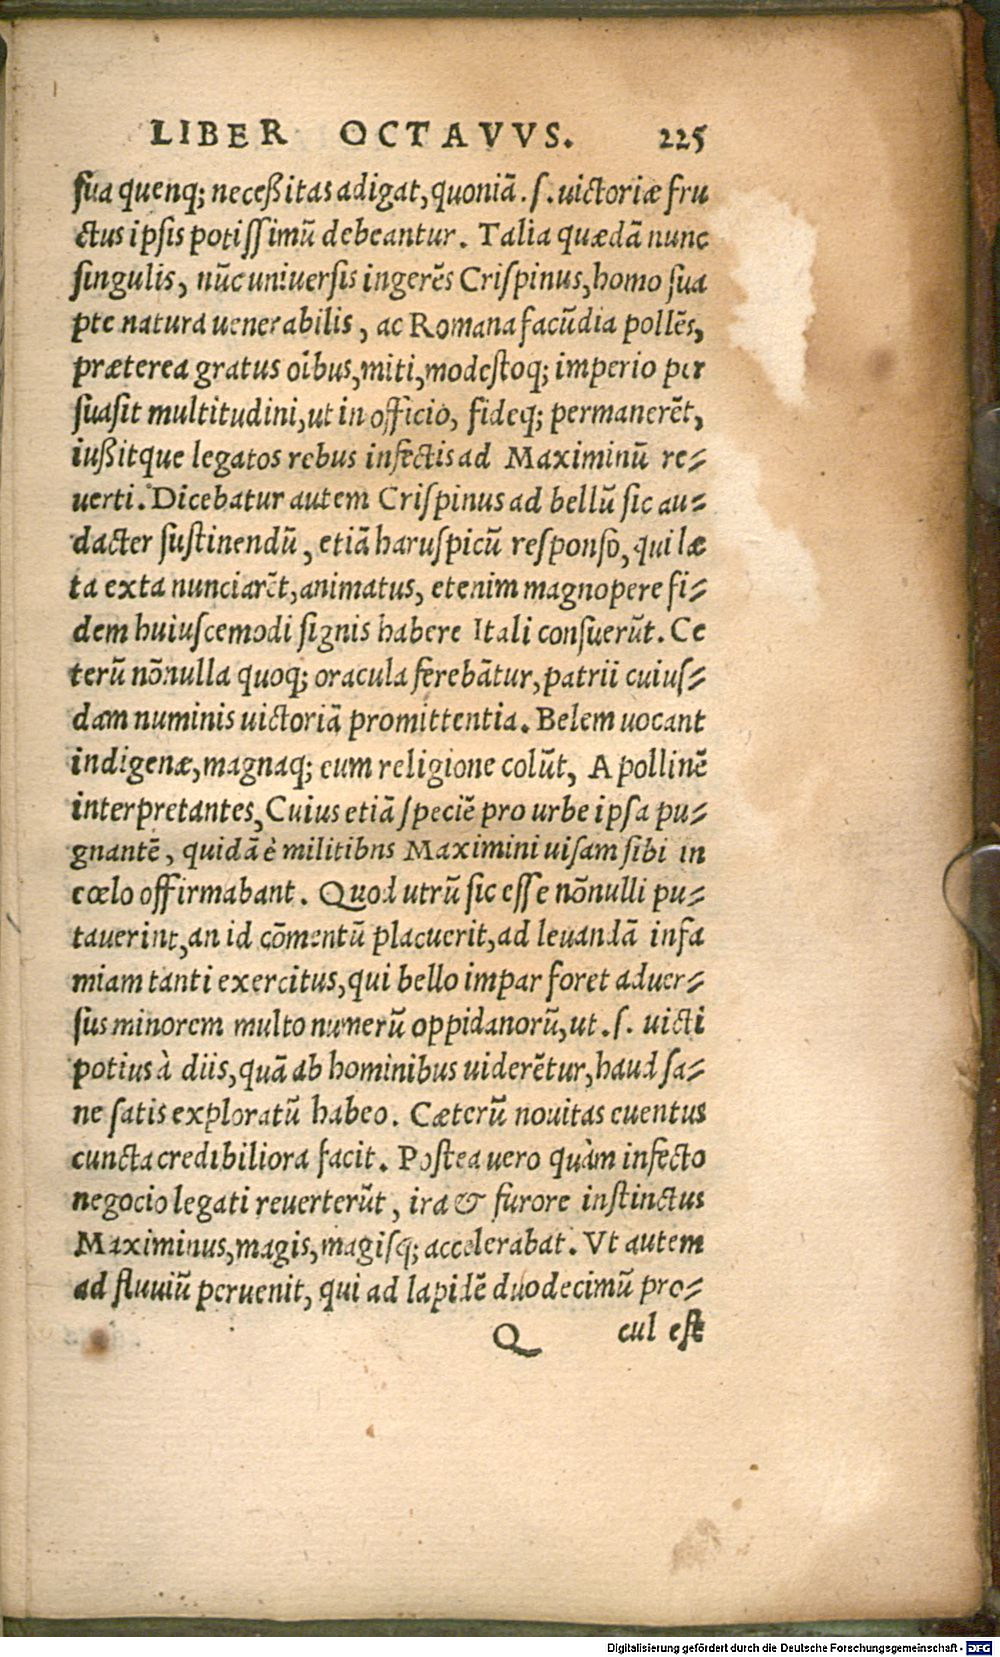 LIBER OCTAVVS. 225
sua quenq; neceßitas adigat, quoniã .s. uictoriæ fru
ctus ipsis potissimũ debeantur. Talia quædã nunc
singulis, nũc uniuersis ingerẽs Crispinus, homo sua
pte natura uenerabilis, ac Romana facũdia pollẽs,
præterea gratus oĩbus, miti, modestoq; imperio per
suasit multitudini, ut in officio, fideq; permanerẽt,
iußitque legatos rebus infectis ad Maximinũ re-
uerti. Dicebatur autem Crispinus ad bellũ sic au-
dacter sustinendũ, etiã haruspicũ responso, qui læ
ta exta nunciarẽt, animatus, etenim magnopere fi-
dem huiuscemodi signis habere Itali consuerũt. Ce
terũ nõnulla quoq; oracula ferebãtur, patrii cuius-
dam numinis uictoriã promittentia. Belem uocant
indigenæ, magnaq; cum religione colũt, Apollinẽ
interpretantes, Cuius etiã speciẽ pro urbe ipsa pu-
gnantẽ, quidã è militibns Maximini uisam sibi in
cœlo offirmabant. Quod utrũ sic esse nõnulli pu-
tauerint, an id cõmentũ placuerit, ad leuandã infa
miam tanti exercitus, qui bello impar foret aduer-
sus minorem multo numerũ oppidanorũ, ut .s. uicti
potius à diis, quã ab hominibus uiderẽtur, haud sa-
ne satis exploratũ habeo. Cæterũ nouitas euentus
cuncta credibiliora facit. Postea uero quàm infecto
negocio legati reuerterũt, ira & furore instinctus
Maximinus, magis, magisq; accelerabat. Vt autem
ad fluuiũ peruenit, qui ad lapidẽ duodecimũ pro-
Q cul est
Digitalisierung gefördert durch die Deutsche Forschungsgemeinschaft - DFG